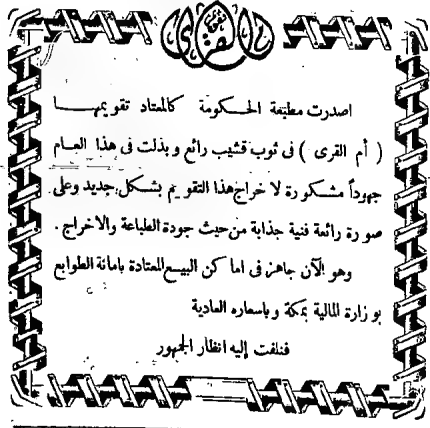 تقويم أم القرى
اصدرت مطبعة الحكومة كالمعتاد تقويمها
( أم القرى ) فى ثوب قشيب رائع وبذلت فى هذا العام
جهوداً مشكورة لاخراج هذا التقويم بشكل جديد وعلى
صورة رائعة فنية جذابة من حيث جودة الطباعة والاخراج .
وهو الآن جاهز فى اماكن البيع المعتادة بامانة الطوابع
بوزارة المالية بمكة وباسعاره العادية
فنلفت إليه انظار الجمهور